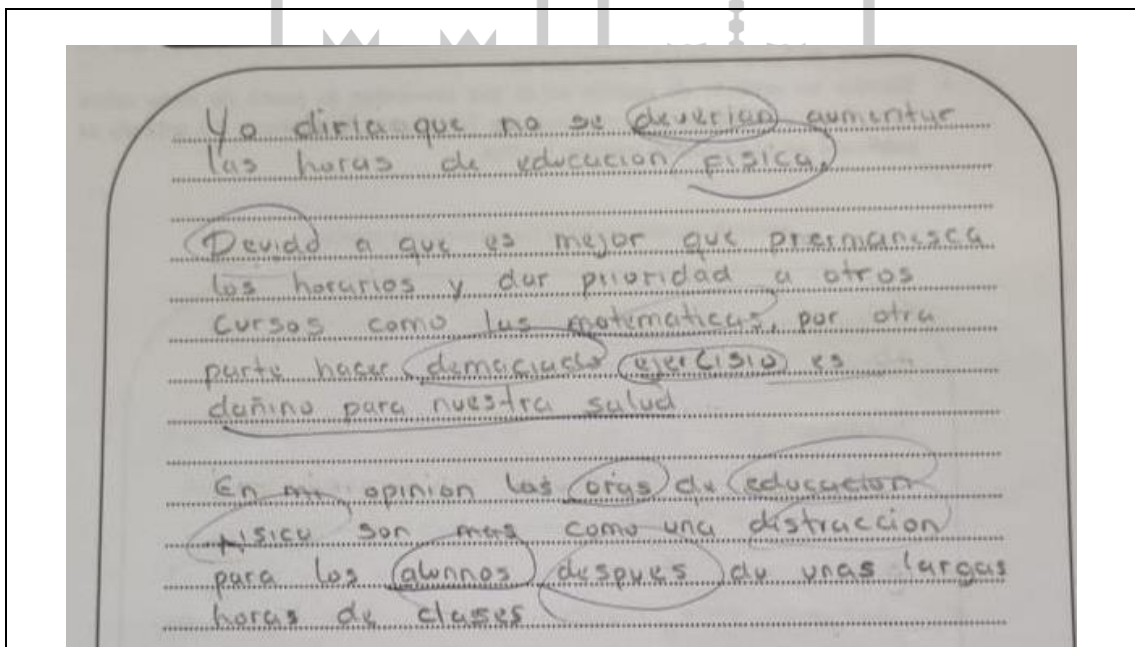 Yo diria que no se deverian aumentar
las horas de educacion FISICA,
Devido a que es mejor que prermanesca
los horarios y dar prioridad a otros
cursos como las matematicas, por otra
parte haser demaciado ejercisio es
dañino para nuestra salud
En mi opinion las oras de educacion
Fisica son mas como una distraccion
para los alunnos despues de unas largas
horas de clases